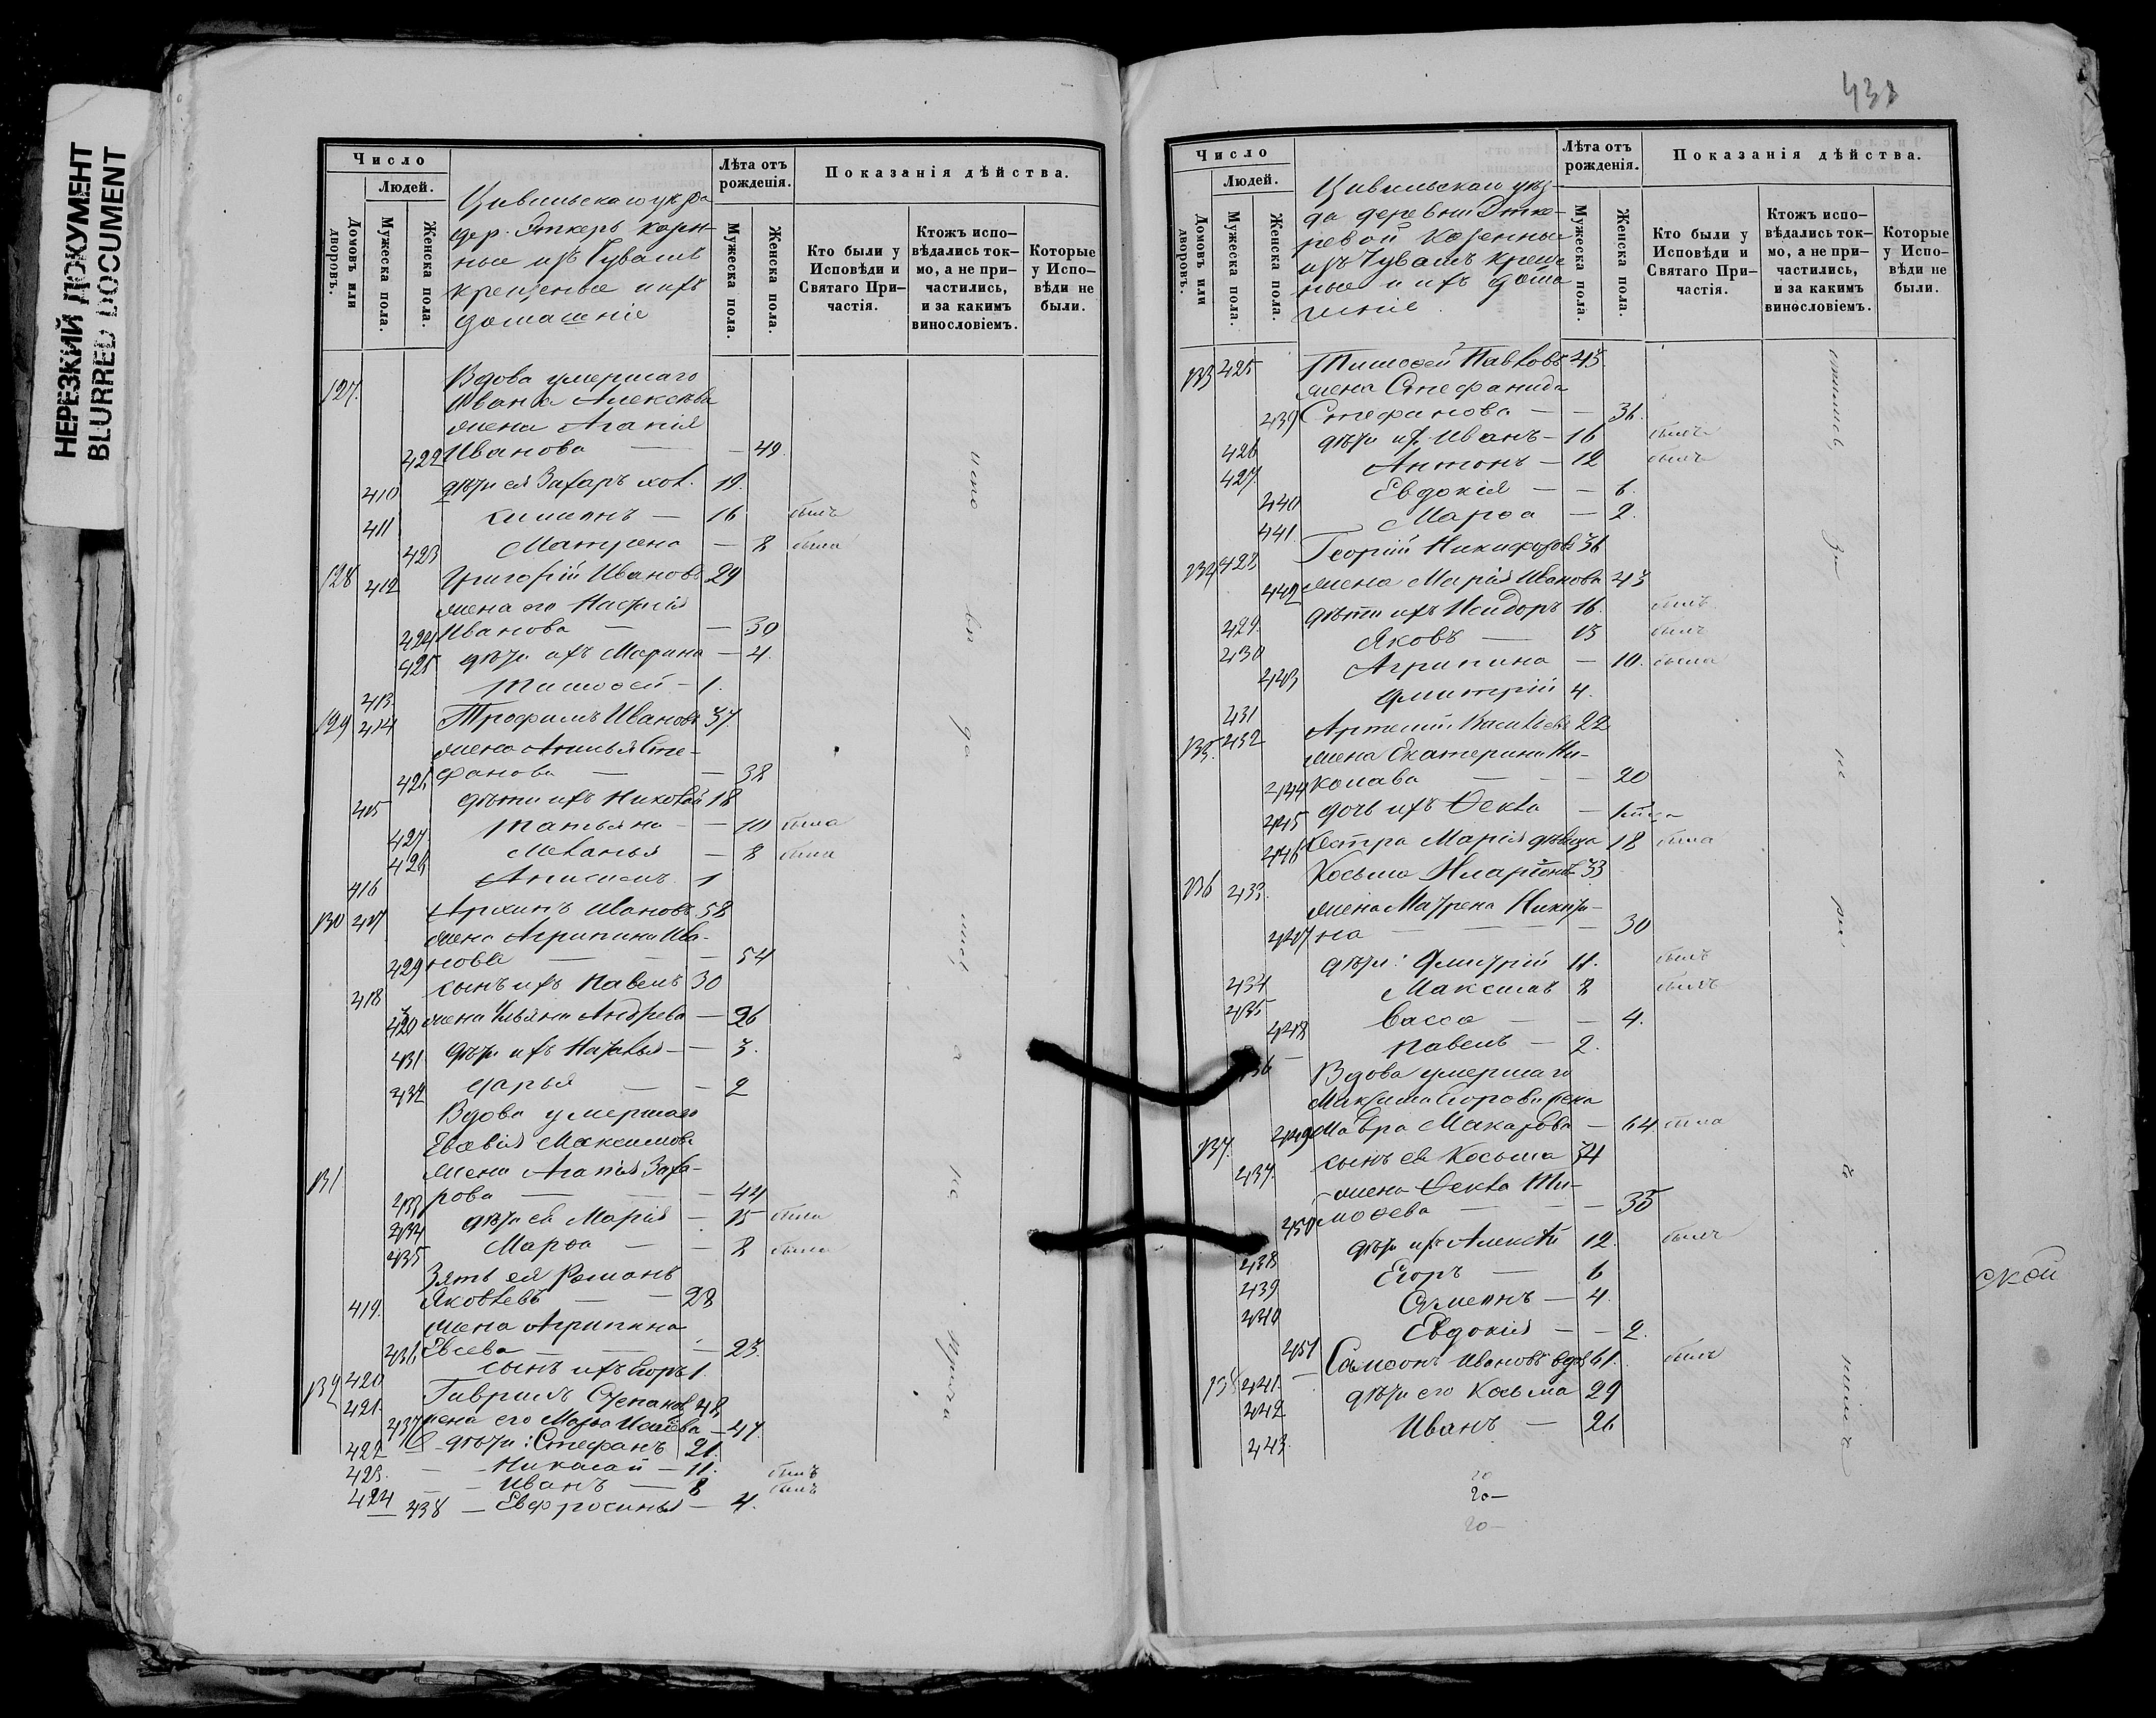 НЕРЕЗКИЙ ДОКУМЕНТ
BLURRED DOCUMENT
Число
Людей.
Домовъ или дворовъ.
Мужеска пола.
Женска пола.
Цивильскаго уѣзда
дер. Эткеръ казен-
ные изъ Чувашъ
крещеные и ихъ
домашніе
Лѣта отъ рожденія.
Мужеска пола.
Женска пола.
Показанія дѣйства.
Кто были у Исповѣди и Святаго При-частія.
Ктожъ испо-вѣдались ток-мо, а не при-частились, и за какимъ винословіемъ.
Которые у Испо-вѣди не были.
127. Вдова умершаго
Ивана Алексѣева
жена Агапія
422 Иванова — — 49.
410 дѣти ея Захаръ хол. 19.
411 Симеонъ — 16 былъ
423 Матрена — 8 была
128 412 Григорій Ивановъ 29
жена его Настасія
424 Иванова — — 30
425 дѣти ихъ Марина — 4.
413. Тимоѳей — 1.
129 414 Трофимъ Ивановъ 37
жена Анисья Сте-
426 фанова — — 38
415 дѣти ихъ Николай 18
427. Татьяна — — 10 была
428 Меланья — 8 была
416 Анисимъ 1
130 417 Архипъ Ивановъ 58
жена Агрипина Ива-
429 нова — — 54
418 сынъ ихъ Павелъ 30
430 жена Ульяна Андреева — 26
431 дѣти ихъ Наталья — — 3.
432 Дарья — — 2
Вдова умершаго
Максимова
131 жена Агапія Заха-
433 рова — — 44
434 дѣти ея Марія — 15 была
435 Марѳа — — 8 была
Зять ея Романъ
419. Яковлевъ — — 28
жена Агрипина
436 Евсева — — 23.
420 сынъ ихъ Егоръ 1.
132 421. Гавриилъ Степановъ 48
437 жена его Марѳа — 47.
422 дѣти: Стефанъ 21.
423. — Николай — 11. былъ
424 — Иванъ — 8 былъ
438 — Евфросинья — 4.
438
Число
Людей.
Домовъ или дворовъ.
Мужеска пола.
Женска пола.
Цивильскаго уѣз-
да деревни Этке-
ревой казенные
изъ Чувашъ креще
ные и ихъ дома
шніе.
Лѣта отъ рожденія.
Мужеска пола.
Женска пола.
Показанія дѣйства.
Кто были у Исповѣди и Святаго При-частія.
Ктожъ испо-вѣдались ток-мо, а не при-частились, и за какимъ винословіемъ.
Которые у Испо-вѣди не были.
133 425 Тимоѳей Павловъ 45.
жена Стефанида
439 Стефанова — — 36.
426 дѣти их. Иванъ — 16 былъ
427. Антонъ — 12 былъ
440 Евдокія — — 6.
441 Марѳа — 2.
134 428 Георгій Никифоровъ 36
442 жена Марія Иванова 43
429. дѣти ихъ Исидоръ 16. былъ
430 Яковъ — 13 былъ
443 Агрипина — 10. была
431 Дмитрій 4.
135. 432 Артемій Васильевъ 22
жена Екатерина Ни-
444 колаева — — — 20
445 дочь ихъ Ѳекла —
446 сестра Марія дѣвица 18 была
136 433. Косьма Иларіоновъ 33
жена Матрена Никити-
447 на — — — 30
434 дѣти: Дмитрій 11. былъ
435 Максимъ 8 былъ
448 Васса — — 4.
436 Павелъ — 2.
Вдова умершаго
Егорова жена
137. 449 Мавра Макарова — 64 была
437. сынъ ея Косьма 34
жена Ѳекла Ти-
450 моѳеева — — — 35
438 дѣти ихъ Алексѣй 12. былъ
439 Егоръ — 6
440 Симеонъ — 4
451 Евдокія — — 2.
138 441. Самсонъ Ивановъ вдов. 61. былъ
442 дѣти его Косьма 29
443. Иванъ — 26
ской
20
20—
20—